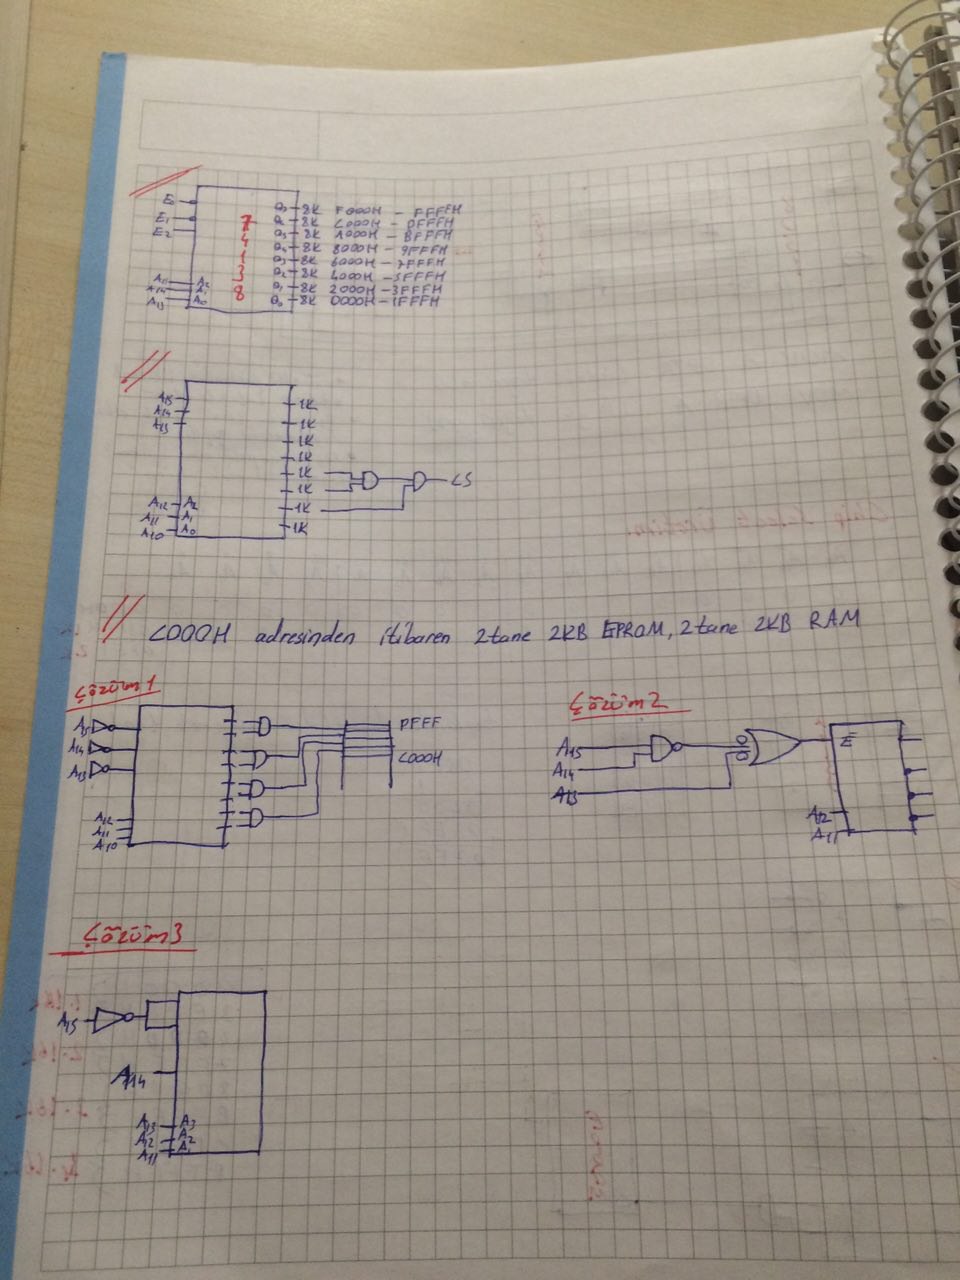 E0
E1
E2
74138
A15 A2
A14 A1
A13 A0
Q7 8K F000H - FFFFH
Q6 8K C000H - DFFFH
Q5 8K A000H - BFFFH
Q4 8K 8000H - 9FFFH
Q3 8K 6000H - 7FFFH
Q2 8K 4000H - 5FFFH
Q1 8K 2000H - 3FFFH
Q0 8K 0000H - 1FFFH
A15
A14
A13
A12 A2
A11 A1
A10 A0
1K
1K
1K
1K
1K
1K
1K
1K
CS
C000H adresinden itibaren 2 tane 2KB EPROM, 2 tane 2KB RAM
Çözüm 1
A15
A14
A13
A12
A11
A10
DFFF
C000H
Çözüm 2
A15
A14
A13
E
A12
A11
Çözüm 3
A15
A14
A13 A3
A12 A2
A11 A1